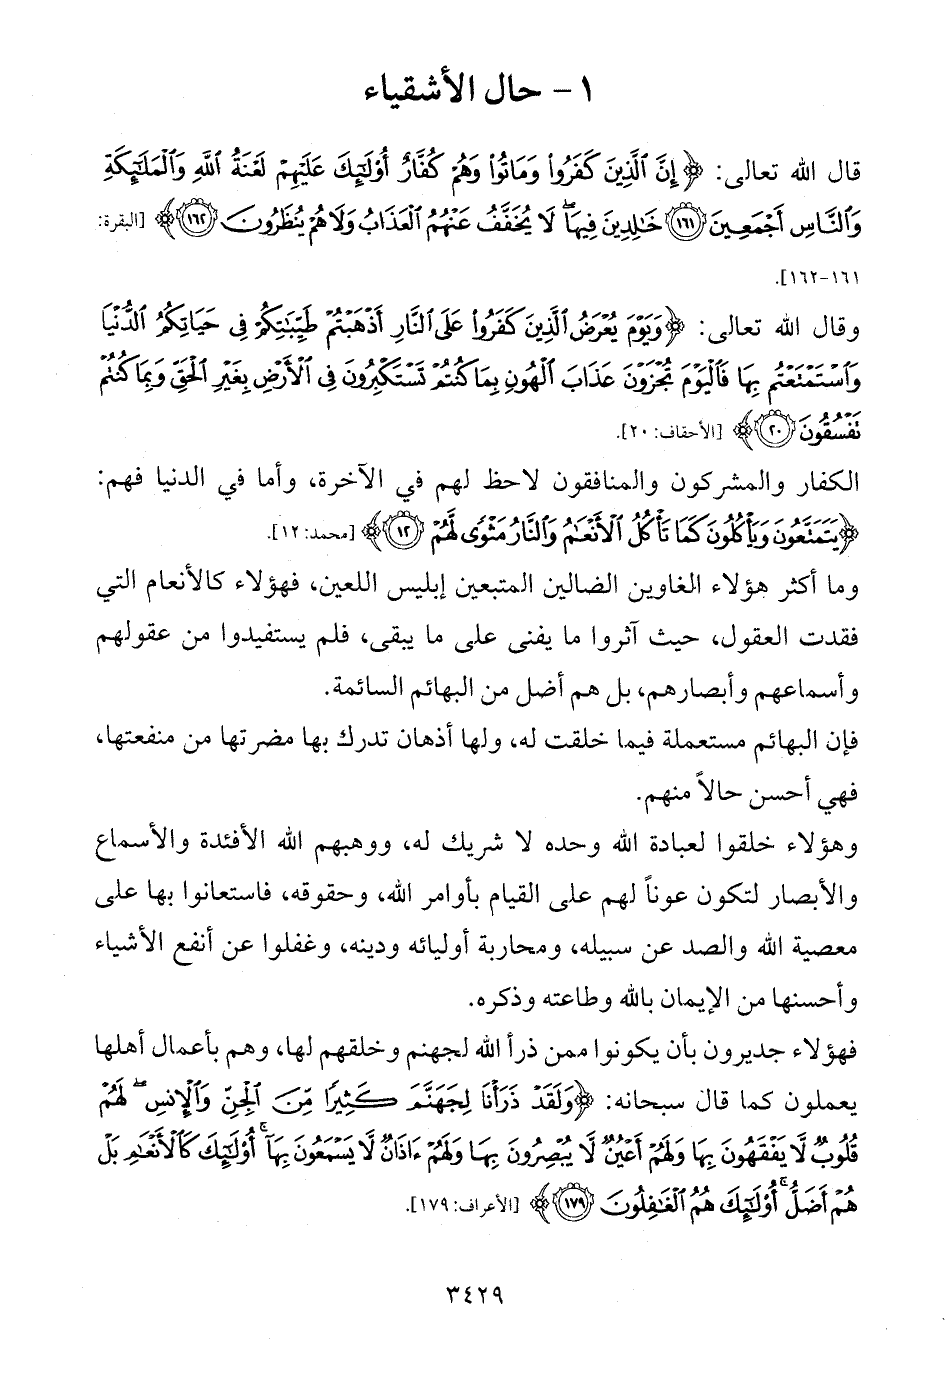 ١ - حال الأشقياء
قال الله تعالى: ﴿إِنَّ ٱلَّذِينَ كَفَرُوا۟ وَمَاتُوا۟ وَهُمْ كُفَّارٌ أُو۟لَٰٓئِكَ عَلَيْهِمْ لَعْنَةُ ٱللَّهِ وَٱلْمَلَٰٓئِكَةِ
وَٱلنَّاسِ أَجْمَعِينَ ١٦١ خَٰلِدِينَ فِيهَا ۖ لَا يُخَفَّفُ عَنْهُمُ ٱلْعَذَابُ وَلَا هُمْ يُنظَرُونَ ١٦٢﴾ [البقرة:
١٦١-١٦٢].
وقال الله تعالى: ﴿وَيَوْمَ يُعْرَضُ ٱلَّذِينَ كَفَرُوا۟ عَلَى ٱلنَّارِ أَذْهَبْتُمْ طَيِّبَٰتِكُمْ فِى حَيَاتِكُمُ ٱلدُّنْيَا
وَٱسْتَمْتَعْتُم بِهَا فَٱلْيَوْمَ تُجْزَوْنَ عَذَابَ ٱلْهُونِ بِمَا كُنتُمْ تَسْتَكْبِرُونَ فِى ٱلْأَرْضِ بِغَيْرِ ٱلْحَقِّ وَبِمَا كُنتُمْ
نَفْسُقُونَ ٢٠﴾ [الأحقاف: ٢٠].
الكفار والمشركون والمنافقون لاحظ لهم في الآخرة، وأما في الدنيا فهم:
﴿يَتَمَتَّعُونَ وَيَأْكُلُونَ كَمَا تَأْكُلُ ٱلْأَنْعَٰمُ وَٱلنَّارُ مَثْوًى لَّهُمْ ١٢﴾ [محمد: ١٢].
وما أكثر هؤلاء الغاوين الضالين المتبعين إبليس اللعين، فهؤلاء كالأنعام التي
فقدت العقول، حيث آثروا ما يفنى على ما يبقى، فلم يستفيدوا من عقولهم
وأسماعهم وأبصارهم، بل هم أضل من البهائم السائمة.
فإن البهائم مستعملة فيما خلقت له، ولها أذهان تدرك بها مضرتها من منفعتها،
فهي أحسن حالاً منهم.
وهؤلاء خلقوا لعبادة الله وحده لا شريك له، ووهبهم الله الأفئدة والأسماع
والأبصار لتكون عوناً لهم على القيام بأوامر الله، وحقوقه، فاستعانوا بها على
معصية الله والصد عن سبيله، ومحاربة أوليائه ودينه، وغفلوا عن أنفع الأشياء
وأحسنها من الإيمان بالله وطاعته وذكره.
فهؤلاء جديرون بأن يكونوا ممن ذرأ الله لجهنم وخلقهم لها، وهم بأعمال أهلها
يعملون كما قال سبحانه: ﴿وَلَقَدْ ذَرَأْنَا لِجَهَنَّمَ كَثِيرًا مِّنَ ٱلْجِنِّ وَٱلْإِنسِ ۖ لَهُمْ
قُلُوبٌ لَّا يَفْقَهُونَ بِهَا وَلَهُمْ أَعْيُنٌ لَّا يُبْصِرُونَ بِهَا وَلَهُمْ ءَاذَانٌ لَّا يَسْمَعُونَ بِهَآ ۚ أُو۟لَٰٓئِكَ كَٱلْأَنْعَٰمِ بَلْ
هُمْ أَضَلُّ ۚ أُو۟لَٰٓئِكَ هُمُ ٱلْغَٰفِلُونَ ١٧٩﴾ [الأعراف: ١٧٩].
٣٤٢٩